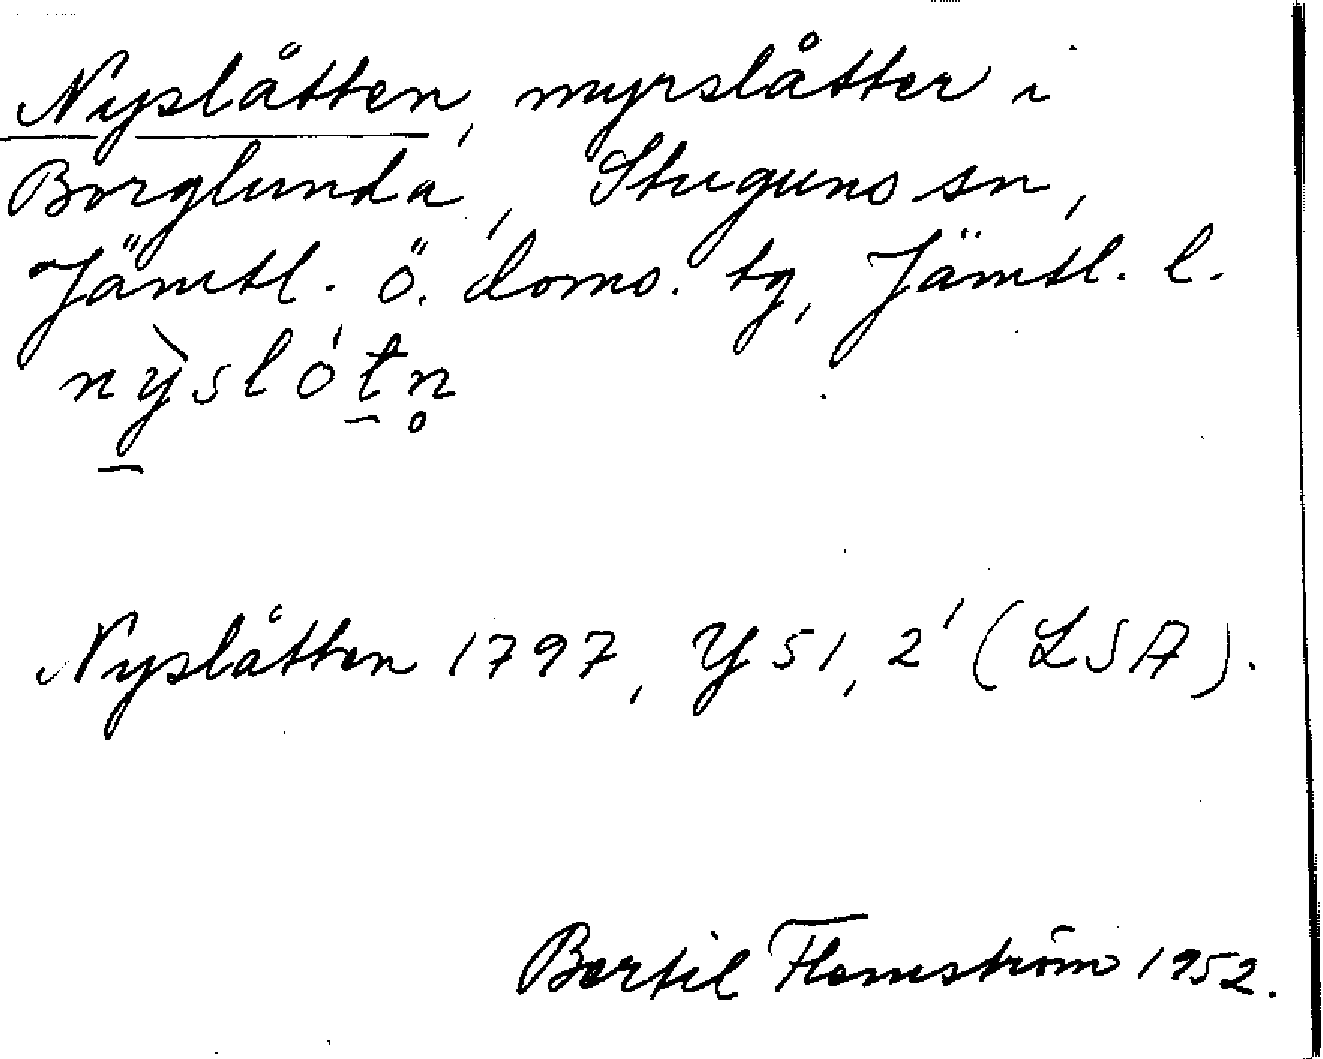 Nyslåtten, myrslåtter i
Borglunda, Stuguns sn,
Jämtl. ö. doms. tg, Jämtl. l.
nỳ̠slót̠n̥
Nyslåtten 1797, Y 51, 2' (LSA).
Bertil Flemström 1952.